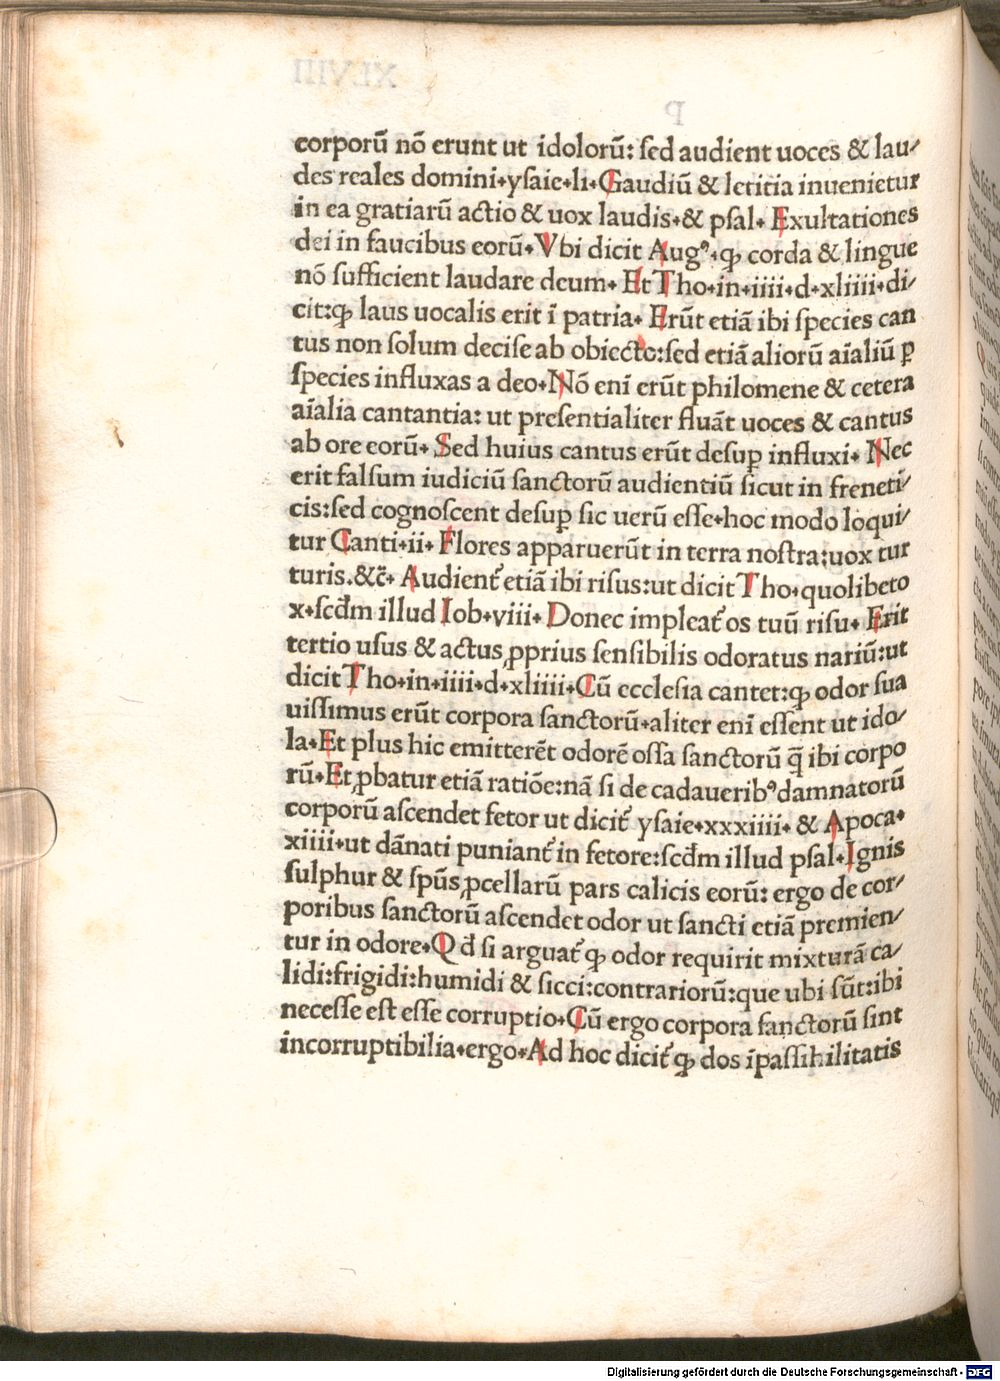 corporū nō erunt ut idolorū: sed audient uoces & lau/
des reales domini.ysaie.li.Gaudiū & letitia inuenietur
in ea gratiarū actio & uox laudis.& psal. Exultationes
dei in faucibus eorū.Vbi dicit Augꝰ.ꝙ corda & lingue
nō sufficient laudare deum. Et Tho.in.iiii.d.xliiii.di/
cit:ꝙ laus uocalis erit ī patria. Erūt etiā ibi species can
tus non solum decise ab obiecto:sed etiā aliorū aīaliū ꝑ
species influxas a deo.Nō enī erūt philomene & cetera
aīalia cantantia: ut presentialiter fluāt uoces & cantus
ab ore eorū. Sed huius cantus erūt desuꝑ influxi. Nec
erit falsum iudiciū sanctorū audientiū sicut in freneti/
cis:sed cognoscent desuꝑ sic uerū esse.hoc modo loqui/
tur Canti.ii. Flores apparuerūt in terra nostra:uox tur
turis.&c̄. Audient᷑ etiā ibi risus:ut dicit Tho.quolibeto
x.scđm illud Iob.viii. Donec impleat᷑ os tuū risu. Erit
tertio usus & actus ꝓprius sensibilis odoratus nariū:ut
dicit Tho.in.iiii.d.xliiii.Cū ecclesia cantet:ꝙ odor sua
uissimus erūt corpora sanctorū.aliter enī essent ut ido/
la.Et plus hic emitterēt odorē ossa sanctorū q̄ ibi corpo
rū.Et ꝓbatur etiā ratiōe:nā si de cadaueribꝰ damnatorū
corporū ascendet fetor ut dicit᷑ ysaie.xxxiiii. & Apoca.
xiiii.ut dānati puniant᷑ in fetore:scđm illud psal.Ignis
sulphur & spūs ꝓcellarū pars calicis eorū: ergo de cor/
poribus sanctorū ascendet odor ut sancti etiā premien/
tur in odore.Qđ si arguat᷑ ꝙ odor requirit mixturā ca/
lidi:frigidi:humidi & sicci:contrariorū:que ubi sūt:ibi
necesse est esse corruptio.Cū ergo corpora sanctorū sint
incorruptibilia.ergo.Ad hoc dicit᷑ ꝙ dos īpassibilitatis
Digitalisierung gefördert durch die Deutsche Forschungsgemeinschaft - DFG